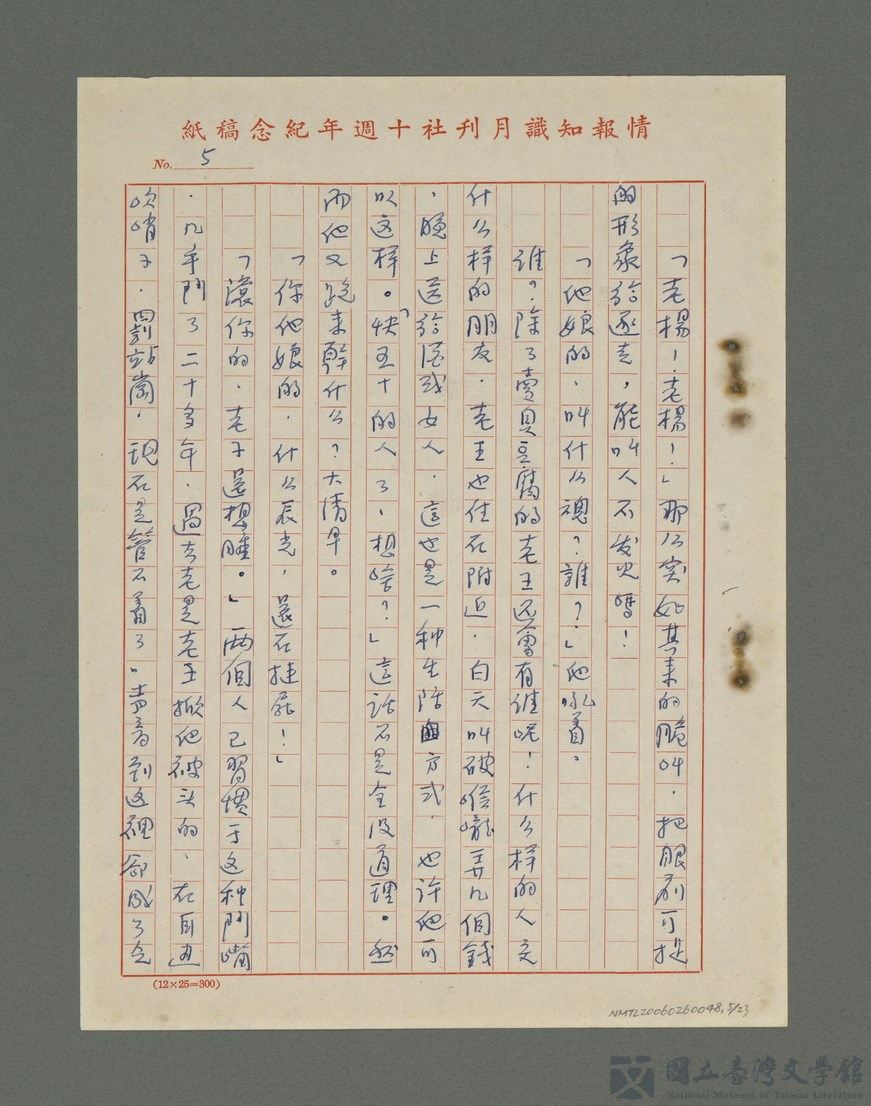 情報知識月刊社十週年紀念稿紙
No. 5
「老楊!老楊!」那么突如其来的脆叫.把眼前可捉
的形象給逐走,能叫人不发火嗎!
「他娘的、叫什么魂?誰?」他吼着。
誰?除了賣臭豆腐的老王还會有誰呢!什么样的人交
什么样的朋友.老王也住在附近.白天叫破喉嚨弄几個錢
,晚上送給酒或女人.這也是一种生活方式.也許他可
以这样。「快五十的人了,想啥?」這話不是全没道理。然
而他又跑来幹什么?大清早。
「你他娘的.什么辰光,還在挺屍!」
「滾你的.老子還想睡。」两個人已習慣于这种鬥嘴
.几乎鬥了二十多年.過去老是老王掀他被头的、在
吹哨子.罰站崗.現在是管不着了。声音到这裡却成了
(12×25=300)
NMTL20060260048,5/23
國立臺灣文學館
National Museum of Taiwan Literature